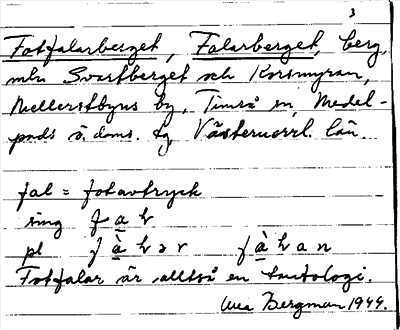 3
Fotfalarberget, Falarberget, berg,
mln Svartberget och Korsmyran,
Mellerstbyns by, Timrå sn, Medel-
pads ö. doms. tg Västernorrl. län.
fal = fotavtryck
sing f a l
pl f à l ə r f à l a n
Fotfalar är alltså en tautologi.
Bergman 1944.